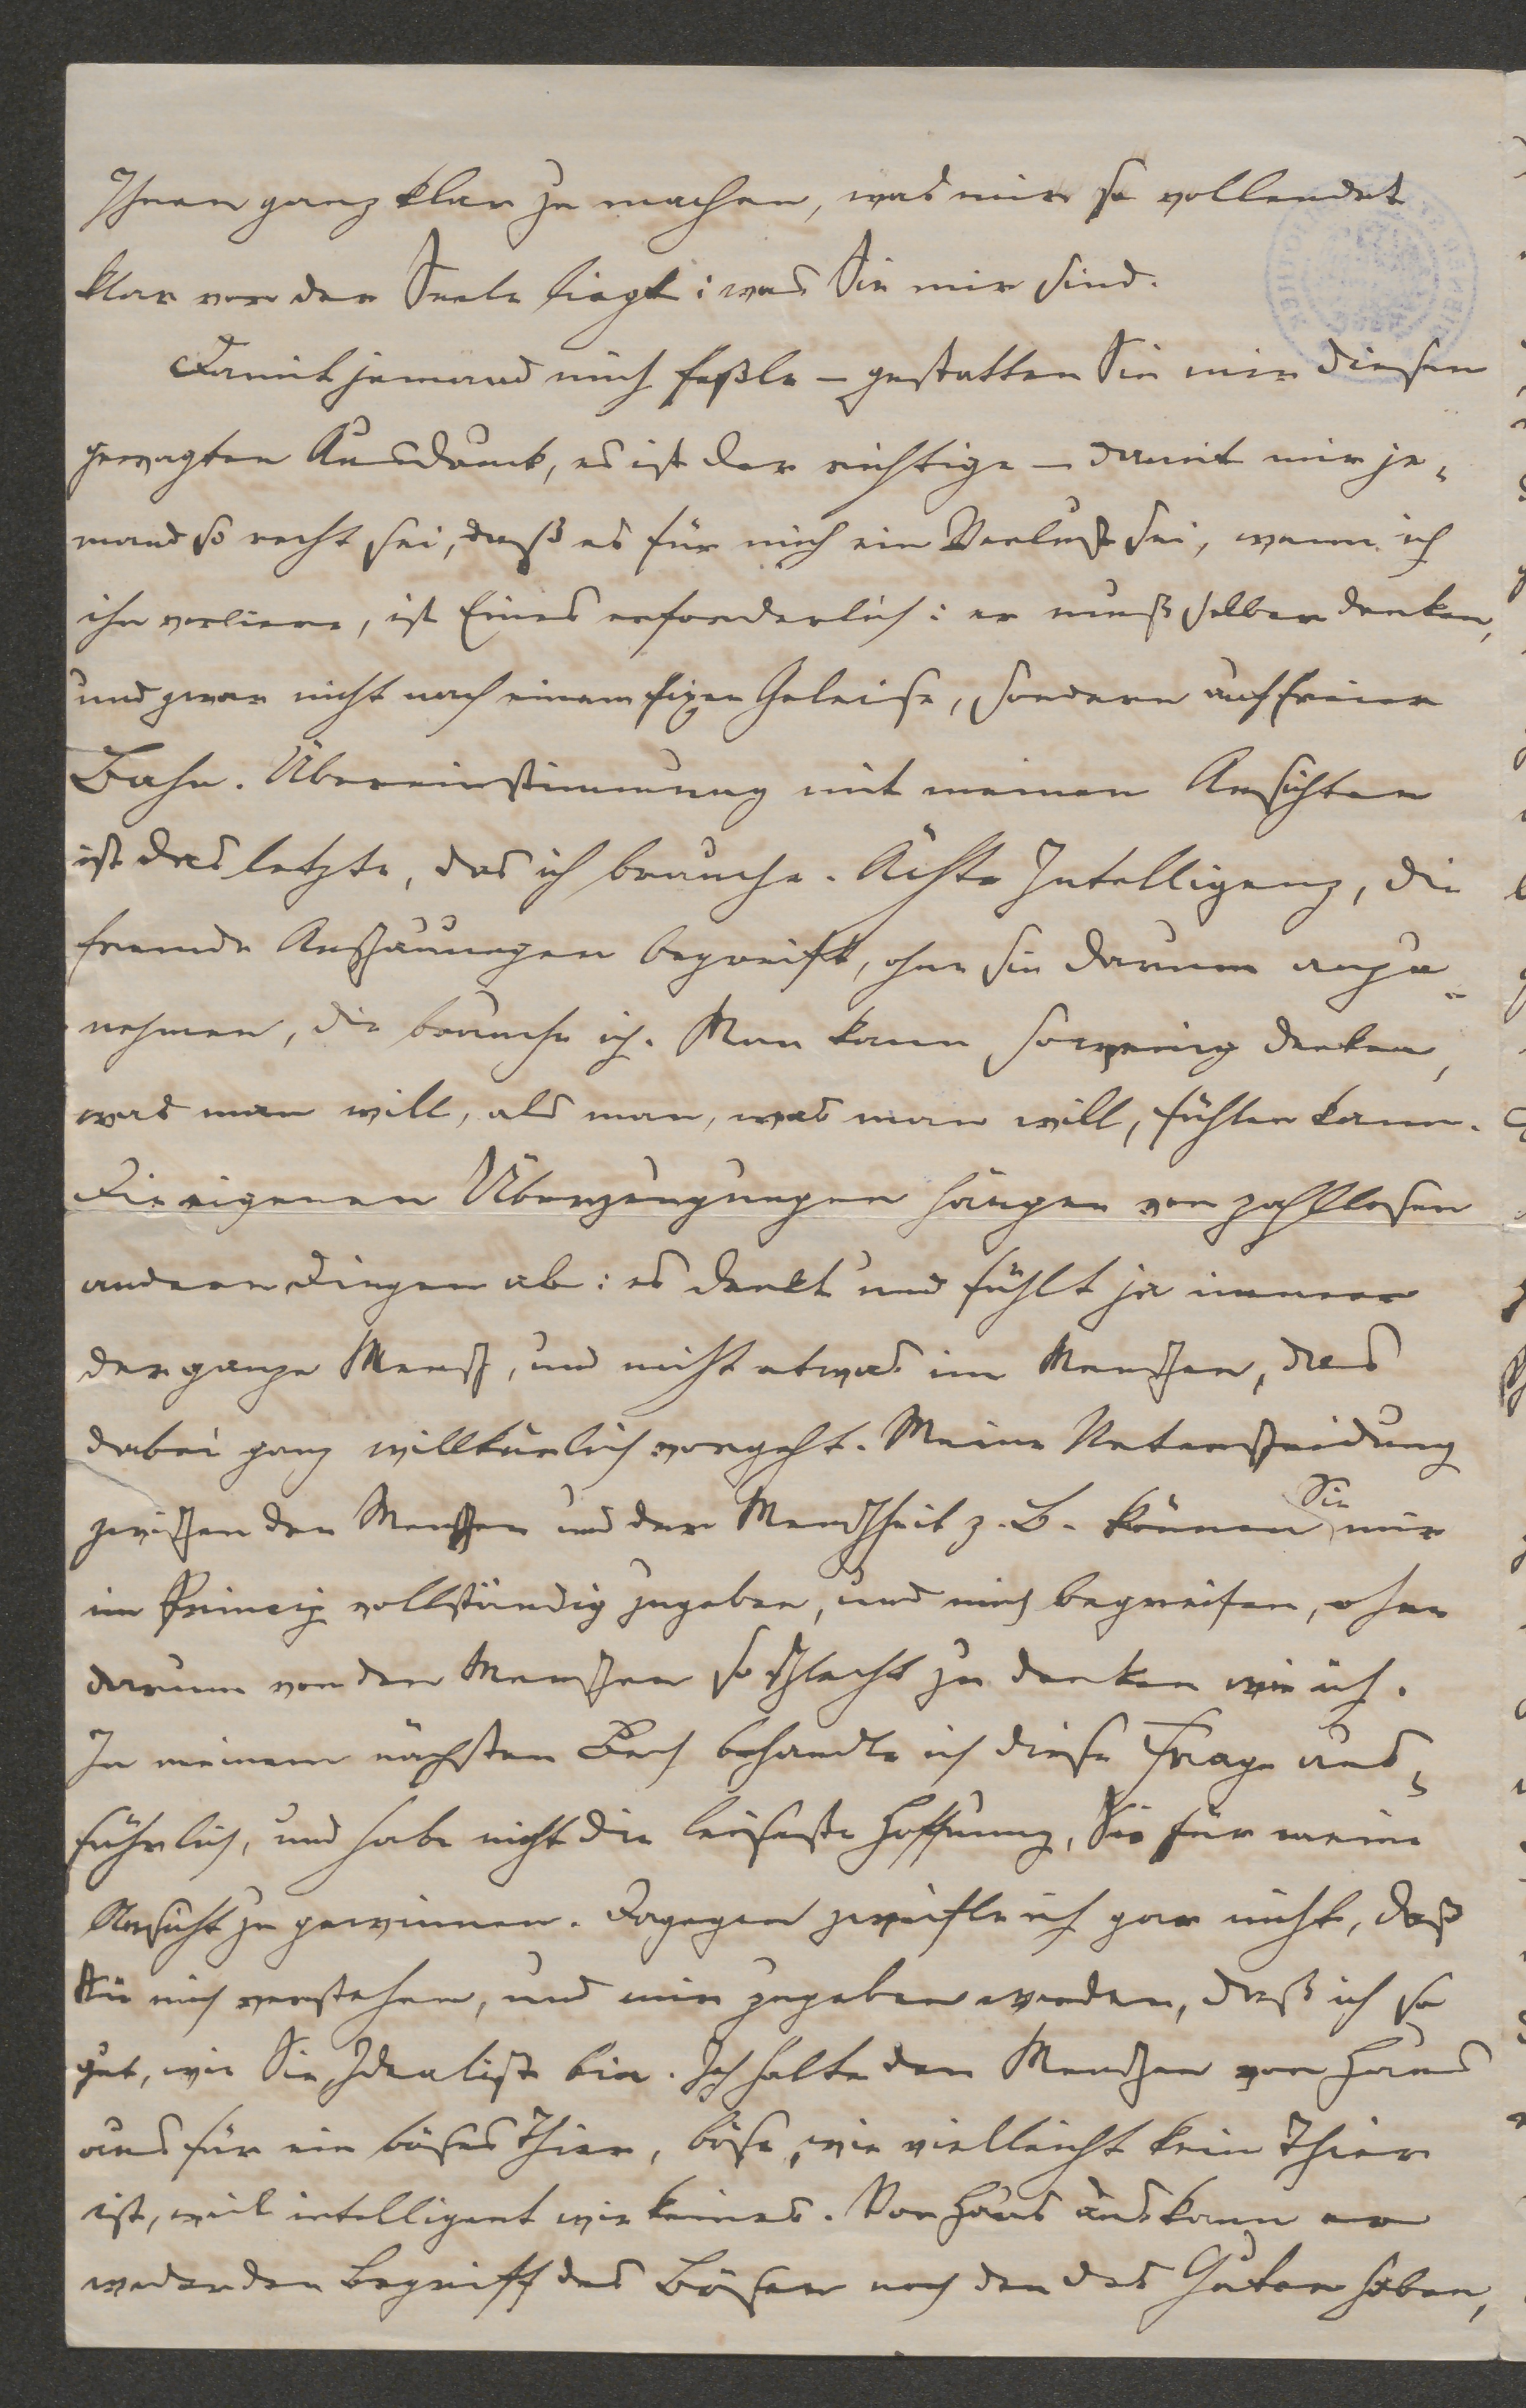 Ihnen ganz klar zu machen, was mir so vollendet
klar vor der Seele liegt: was Sie mir sind.
Damit jemand mich feßle – gestatten Sie mir diesen
gewagten Ausdruck, es ist der richtige – damit mir je-
mand so recht sei, daß es für mich ein Verlust sei, wenn ich
ihn verliere, ist Eines erforderlich: er muß selber denken,
und zwar nicht nach einem fixen Geleise, sondern auf freier
Bahn. Übereinstimmung mit meinen Ansichten
ist das letzte, das ich brauche. Ächte Intelligenz, die
fremde Anschauungen begreift, ohne sie darum anzu-
nehmen, die brauche ich. Man kann sowenig denken,
was man will, als man, was man will, fühlen kann.
Die eigenen Überzeugungen hängen von zahllosen
andern Dingen ab: es denkt und fühlt ja immer
der ganze Mensch, und nicht etwas im Menschen, das
dabei ganz willkürlich vorgeht. Meine Unterscheidung
zwischen den Menschen und der Menschheit z. B. können Sie mir
im Princip vollständig zugeben, und mich begreifen, ohne
darum von den Menschen so schlecht zu denken wie ich.
In meinem nächsten Buch behandle ich diese Frage aus-
führlich, und habe nicht die leiseste Hoffnung, Sie für meine
Ansicht zu gewinnen. Dagegen zweifle ich gar nicht, daß
Sie mich verstehen, und mir zugeben werden, daß ich so
gut, wie Sie, Idealist bin. Ich halte den Menschen von Haus
aus für ein böses Thier, böse, wie vielleicht kein Thier
ist, weil intelligent wie keines. Von Haus aus kann er
weder den Begriff des Bösen noch den des Guten haben,